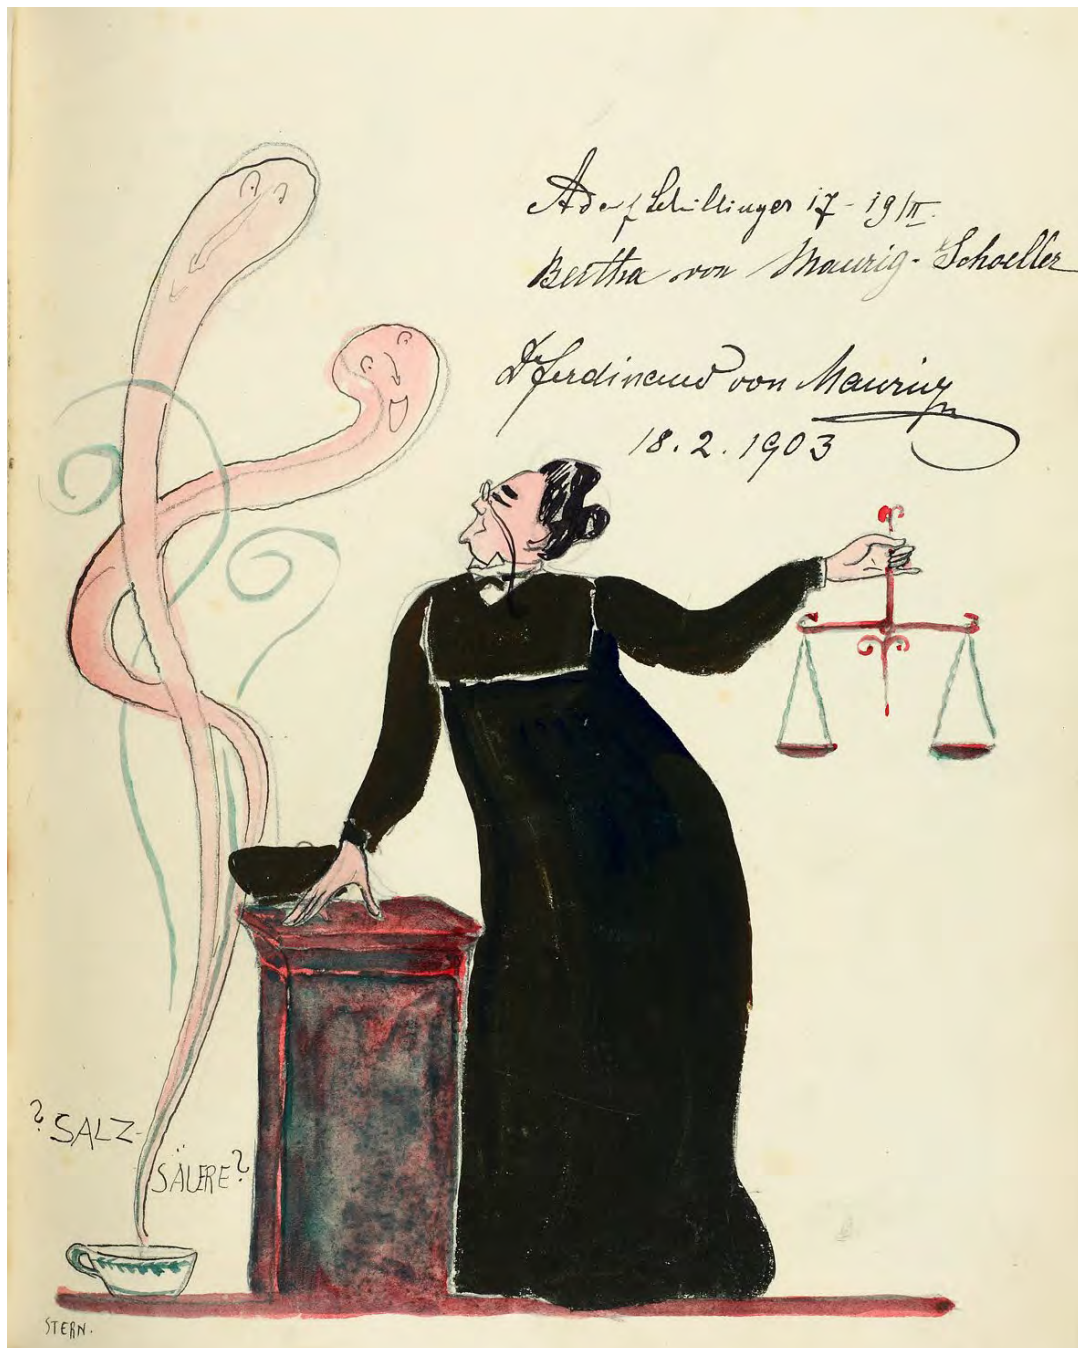 Adolf Schillinger 17 - 19/II.
Bertha von Maurig-Schoeller
Dr Ferdinand von Maurig
18.2.1903
? SALZ-
SÄUERE?
STERN.